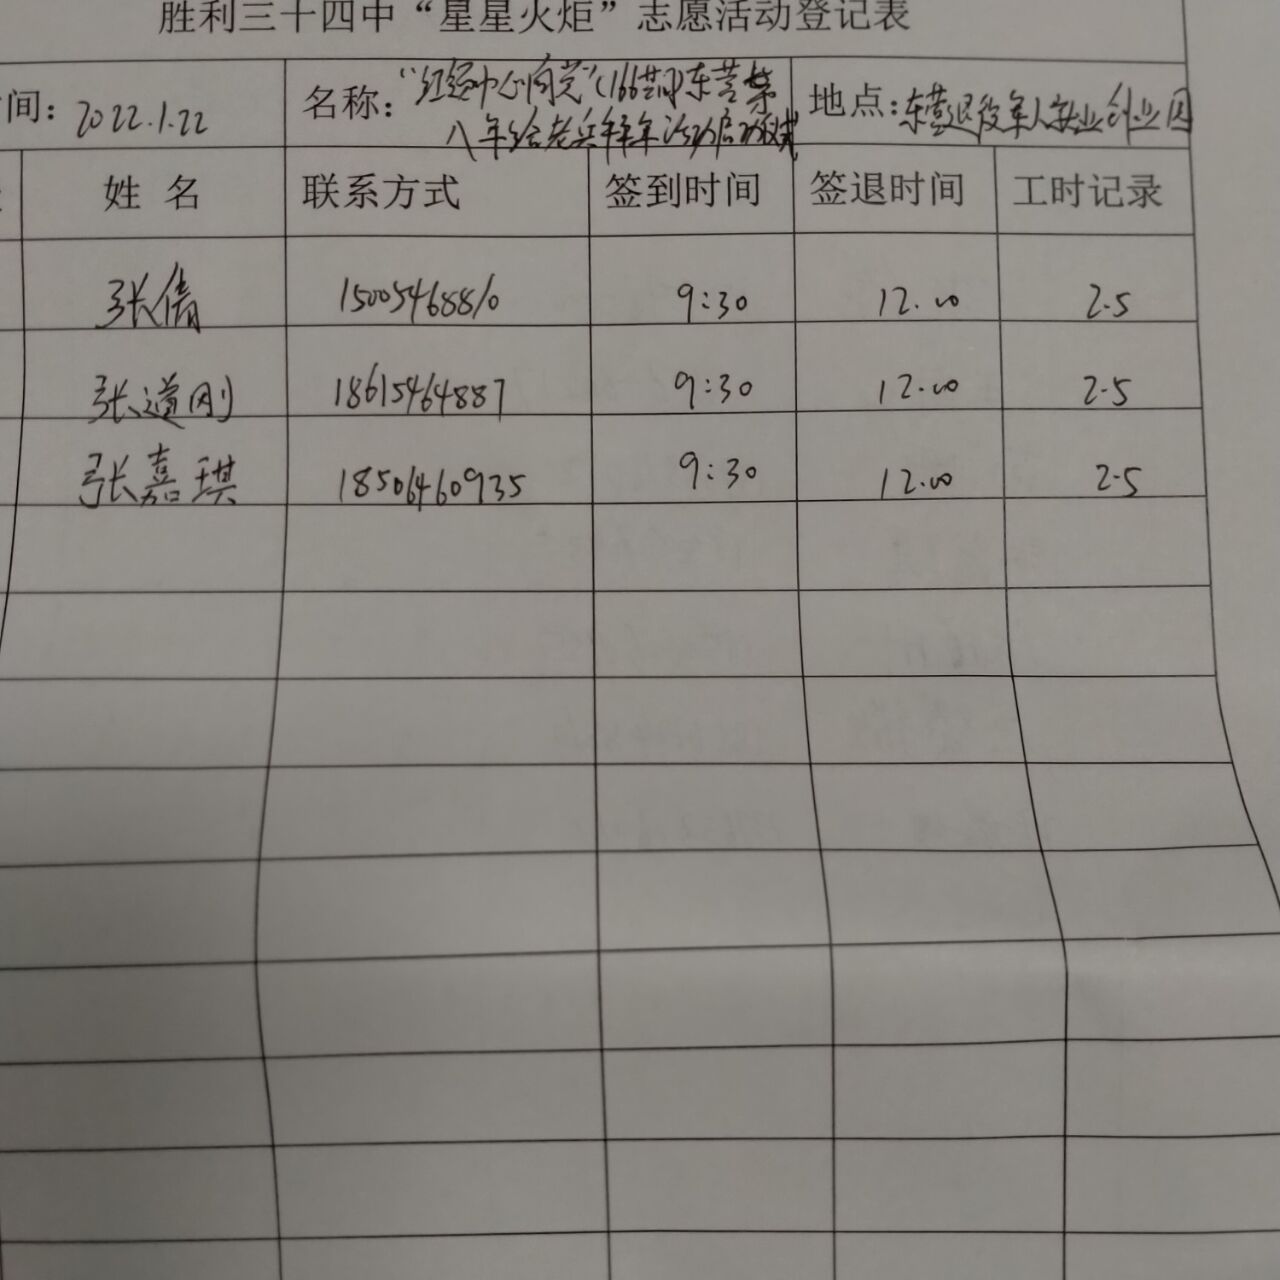 胜利三十四中“星星火炬”志愿活动登记表
间：2022.1.22 名称：“红经中心向党” 东营第 地点：东营退役军人安业创业园
八年给老兵拜年活动启动仪式
姓 名 联系方式 签到时间 签退时间 工时记录
张倩 15005468810 9:30 12.00 2.5
张道刚 18615464887 9:30 12.00 2.5
张嘉琪 18506460935 9:30 12.00 2.5